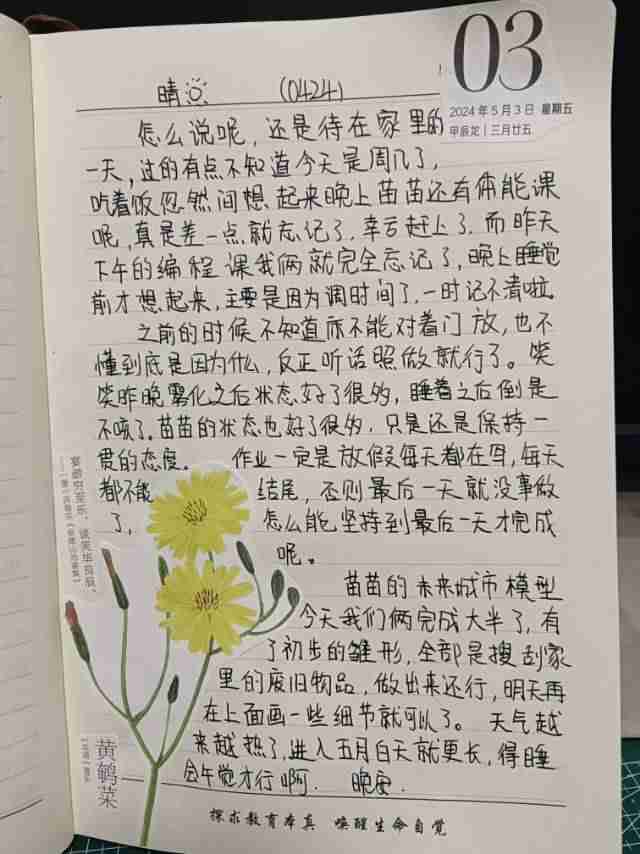 03
2024年5月3日 星期五
甲辰龙|三月廿五
晴 (0424)
怎么说呢，还是待在家里的
一天，过的有点不知道今天是周几了，
吃着饭忽然间想起来晚上苗苗还有体能课
呢，真是差一点就忘记了，幸亏赶上了，而昨天
下午的编程课我俩就完全忘记了，晚上睡觉
前才想起来，主要是因为调时间了，一时记不清啦。
之前的时候不知道亦不能对着门放，也不
懂到底是因为什么，反正听话照做就行了。笑
笑昨晚雾化之后状态好了很多，睡着之后倒是
不咳了。苗苗的状态也好了很多，只是还是保持一
贯的态度。 作业一定是放假每天都在写，每天
都不能 结尾，否则最后一天就没事做
了， 怎么能坚持到最后一天才完成
呢。
苗苗的未来城市模型
今天我们俩完成大半了，有
了初步的雏形，全部是搜刮家
里的废旧物品，做出来还行，明天再
在上面画一些细节就可以了。天气越
来越热了，进入五月白天就更长，得睡
会午觉才行啊. 晚安.
宴游穷至乐，谈笑毕良辰。
黄鹌菜
探求教育本真 唤醒生命自觉